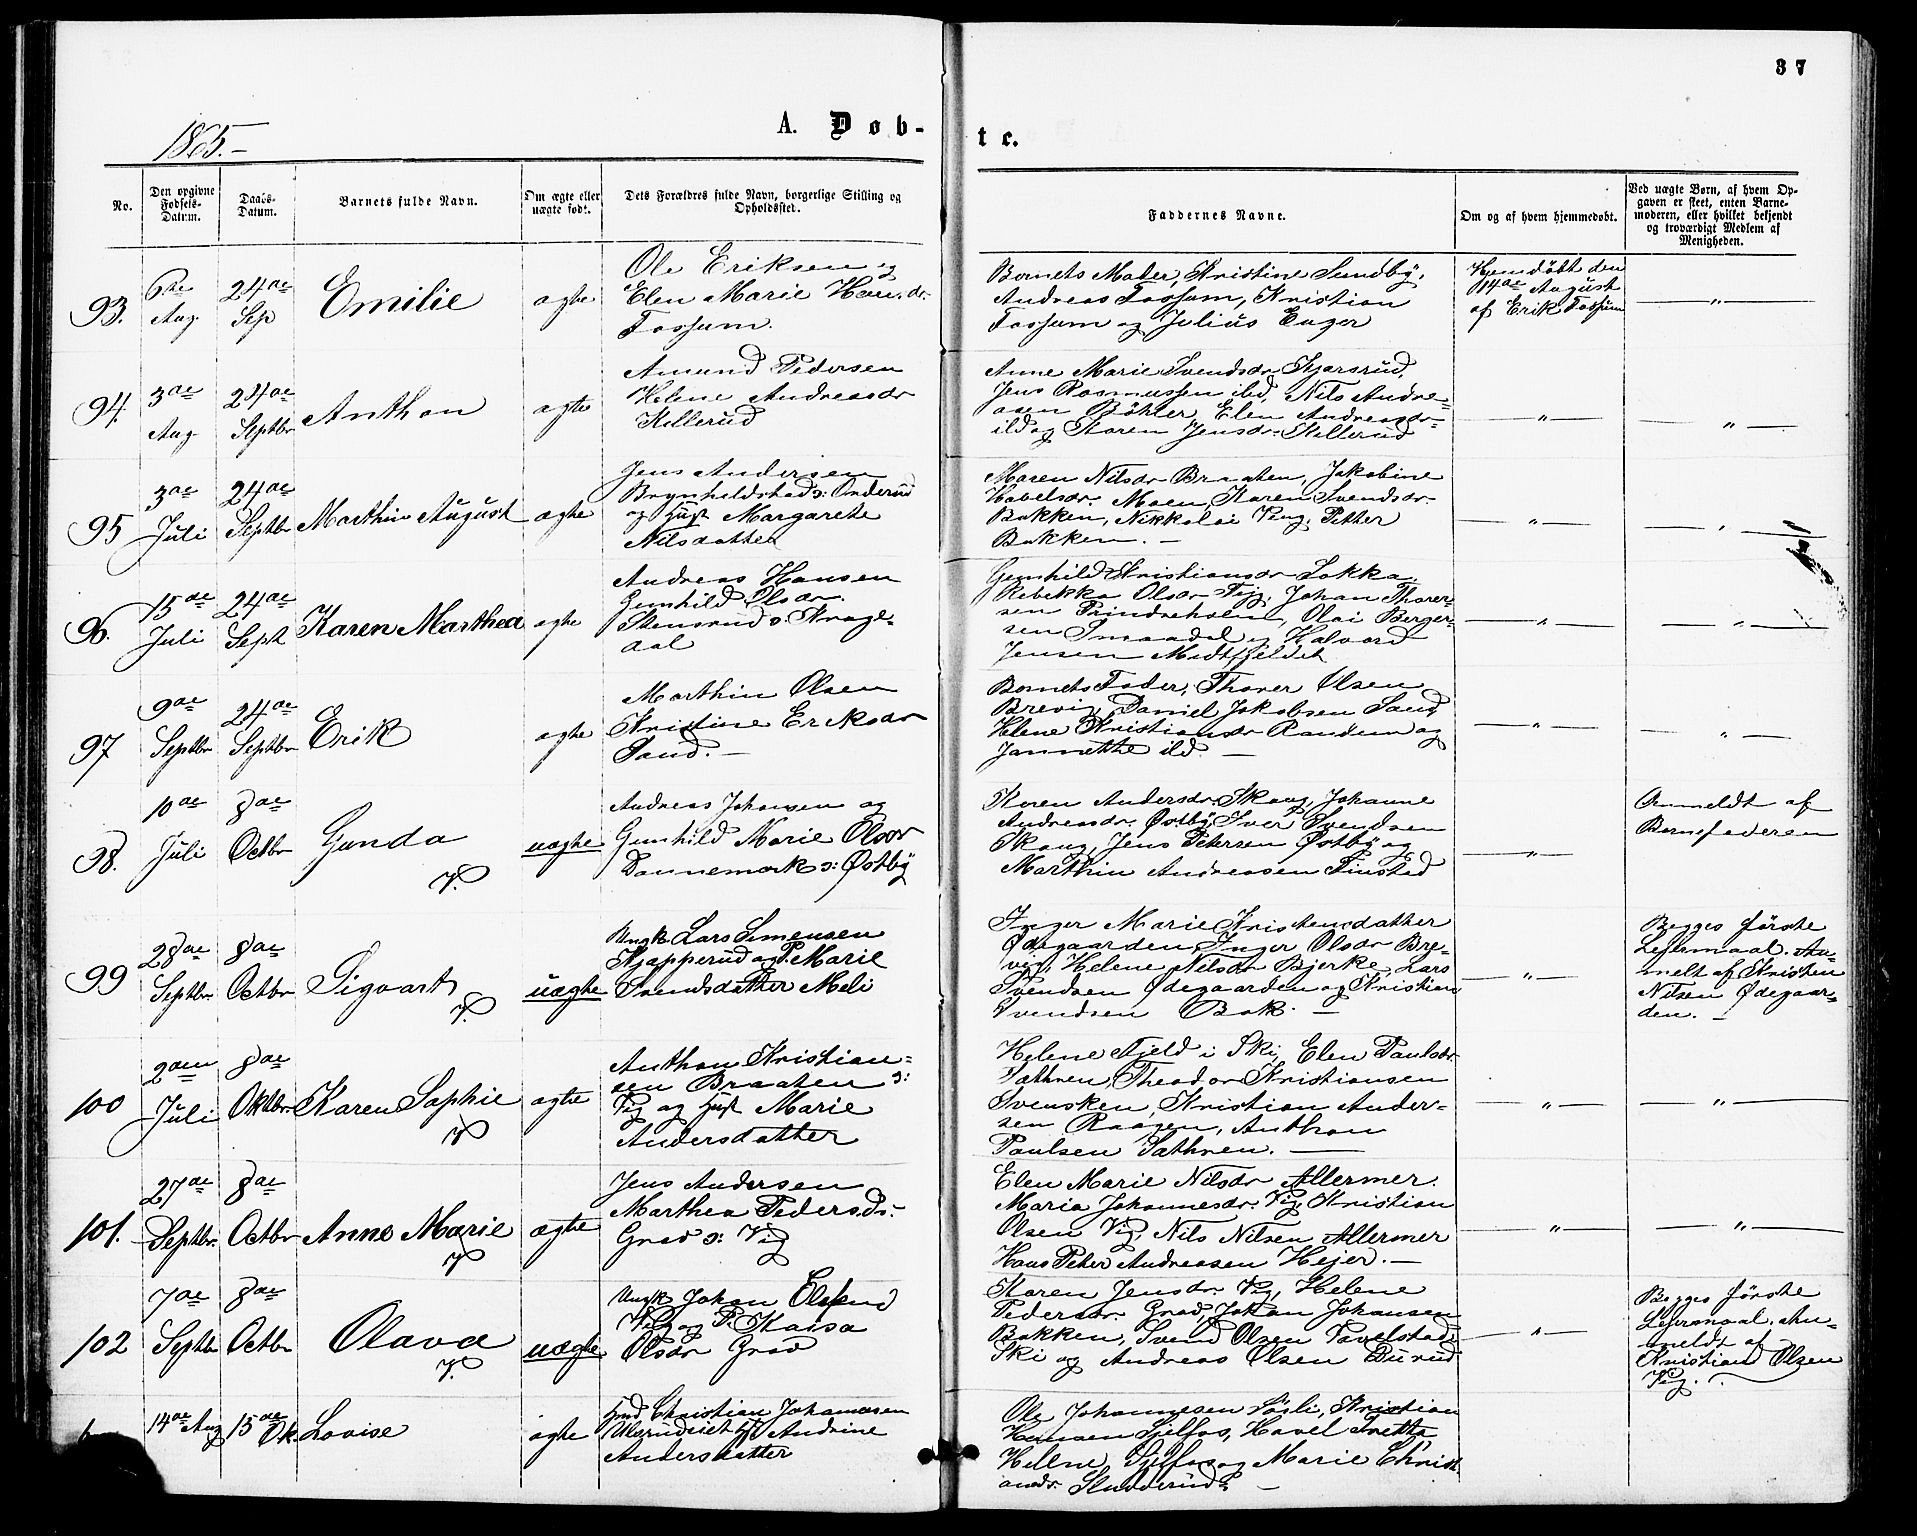 37
1865.-
A. Døb-
te.
No.
Den opgivne Fødsels-Datum.
Daabs-Datum.
Barnets fulde Navn.
Om ægte eller uægte født.
Dets Forældres fulde Navn, borgerlige Stilling og Opholdssted.
Faddernes Navne.
Om og af hvem hjemmedøbt.
Ved uægte Børn, af hvem Opgaven er skeet, enten Barnemoderen, eller hvilket bekjendt og troværdigt Medlem af Menigheden.
93.
6te Aug.
24de Sep
Emilie
ægte
Ole Eriksen og
Elen Marie Hansdr.
Fossum.
Barnets Moder, Kristine Sundby,
Andreas Fossum, Kristian
Fossum og Julius Enger
Hjemdøbt den
14de August
af Erik Fossum
— " —
94.
3de Aug.
24de Septbr
Anthon
ægte
Amund Pedersen
Helene Andreasdr
Killerud
Anne Marie Svendsdr
Jens Rasmussen ibd, Nils Andre-
asen Bøhler, Elen Andreasdr
ibd og Karen Jensdr. Killerud
— " —
— " —
95
3de Juli
24de Septbr
Marthin August
ægte
Jens Andersen
Brynhildstad s: Onderud
og Hust Margarete
Nilsdatter
Maren Nilsdr Braaten, Jakobine
Havelsdr. Moen, Karen Svendsdr.
Bakken, Nikkolai Veng, Petter
Bakken. —
— " —
— " —
96.
15de Juli
24de Sept
Karen Marthea
ægte
Andreas Hansen
Gunhild Olsdr.
Stensrud s: Krage-
aal
Gunhild Kristiansdr Løkka
Rebekka Olsdr Vig, Johan Thorer-
sen Trindreholen, Olai Berger-
sen Smaadal og Halvard
Jensen Midtfjeldet
— " —
— " —
97
9de Septbr
24de Septbr
Erik
ægte
Marthin Olsen
Kristine Eriksdr
Sand. —
Barnets Fader, Thorer Olsen
Brevig, Daniel Jakobsen Sand
Helene Kristiansdr Randem og
Jannethe ibd. —
— " —
— " —
98.
10de Juli
8de Octbr
Gunda
V.
uægte
Andreas Johansen og
Gunhild Marie Olsdr
Dannemark s: Østby
Karen Andersdr. Skaug, Johanne
Andreasdr. Østby, Iver Svendsen
Skaug, Jens Petersen Østby og
Marthin Andreasen Finsted
— " —
Anmeldt af
Barnefaderen
99
28de Septbr
8de Octbr
Sigvart
V.
uægte
Ungk Lars Simensen
Kjapperud og P. Marie
Svendsdatter Meli
Inger Marie Kristensdatter
Ødegaarden, Inger Olsdr Bre-
vig, Helene Nilsdr Bjerke, Lars
Svendsen Ødegaarden og Kristian
Svendsen Bak. —
— " —
Begges første
Leiermaal. An-
melt af Kristen
Nilsen Ødegaar-
den. —
100
2den Juli
8de Oktbr.
Karen Sophie
V
ægte
Anthon Kristian-
sen Braaten s:
Vig og Hust Marie
Andersdatter
Helene Fjeld i Ski, Elen Paulsdr.
Sæthren, Theodor Kristiansen
Svensken, Kristian Ander-
sen Raagen, Anthon
Paulsen Sæthren. —
— " —
— " —
101.
27de Septbr.
8de Octbr
Anne Marie
V
ægte
Jens Andersen
Marthea Pedersd.
Grav s: Vig
Elen Marie Nilsdr Allermer.
Maria Johannesdr. Vig, Kristian
Olsen Vig, Nils Nilsen Allermer
Hans Peter Andreasen Hejer. —
— " —
— " —
102
7de Septbr
8de Octbr
Olava
V.
uægte
Ungk Johan
Vig og P. Kaisa
Olsdr Grav
Karen Jensdr. Vig, Helene
Pedersdr. Grav, Johan Johansen
Bakken, Svend Olsen
Ski og Andreas Olsen Burud
— " —
Begges første
Leiermaal. An-
meldt af
Kristian Olsen
Vig.
14de Aug
15de Ok.
Lovise
ægte
Christian Johannesen
Andrine
Andersdatter
Ole Johannesen Kristian
Hansen Sjelfos, Havel Tretta
Hellene Sjelfos og Marie Christ
ansdr. Studderud. —